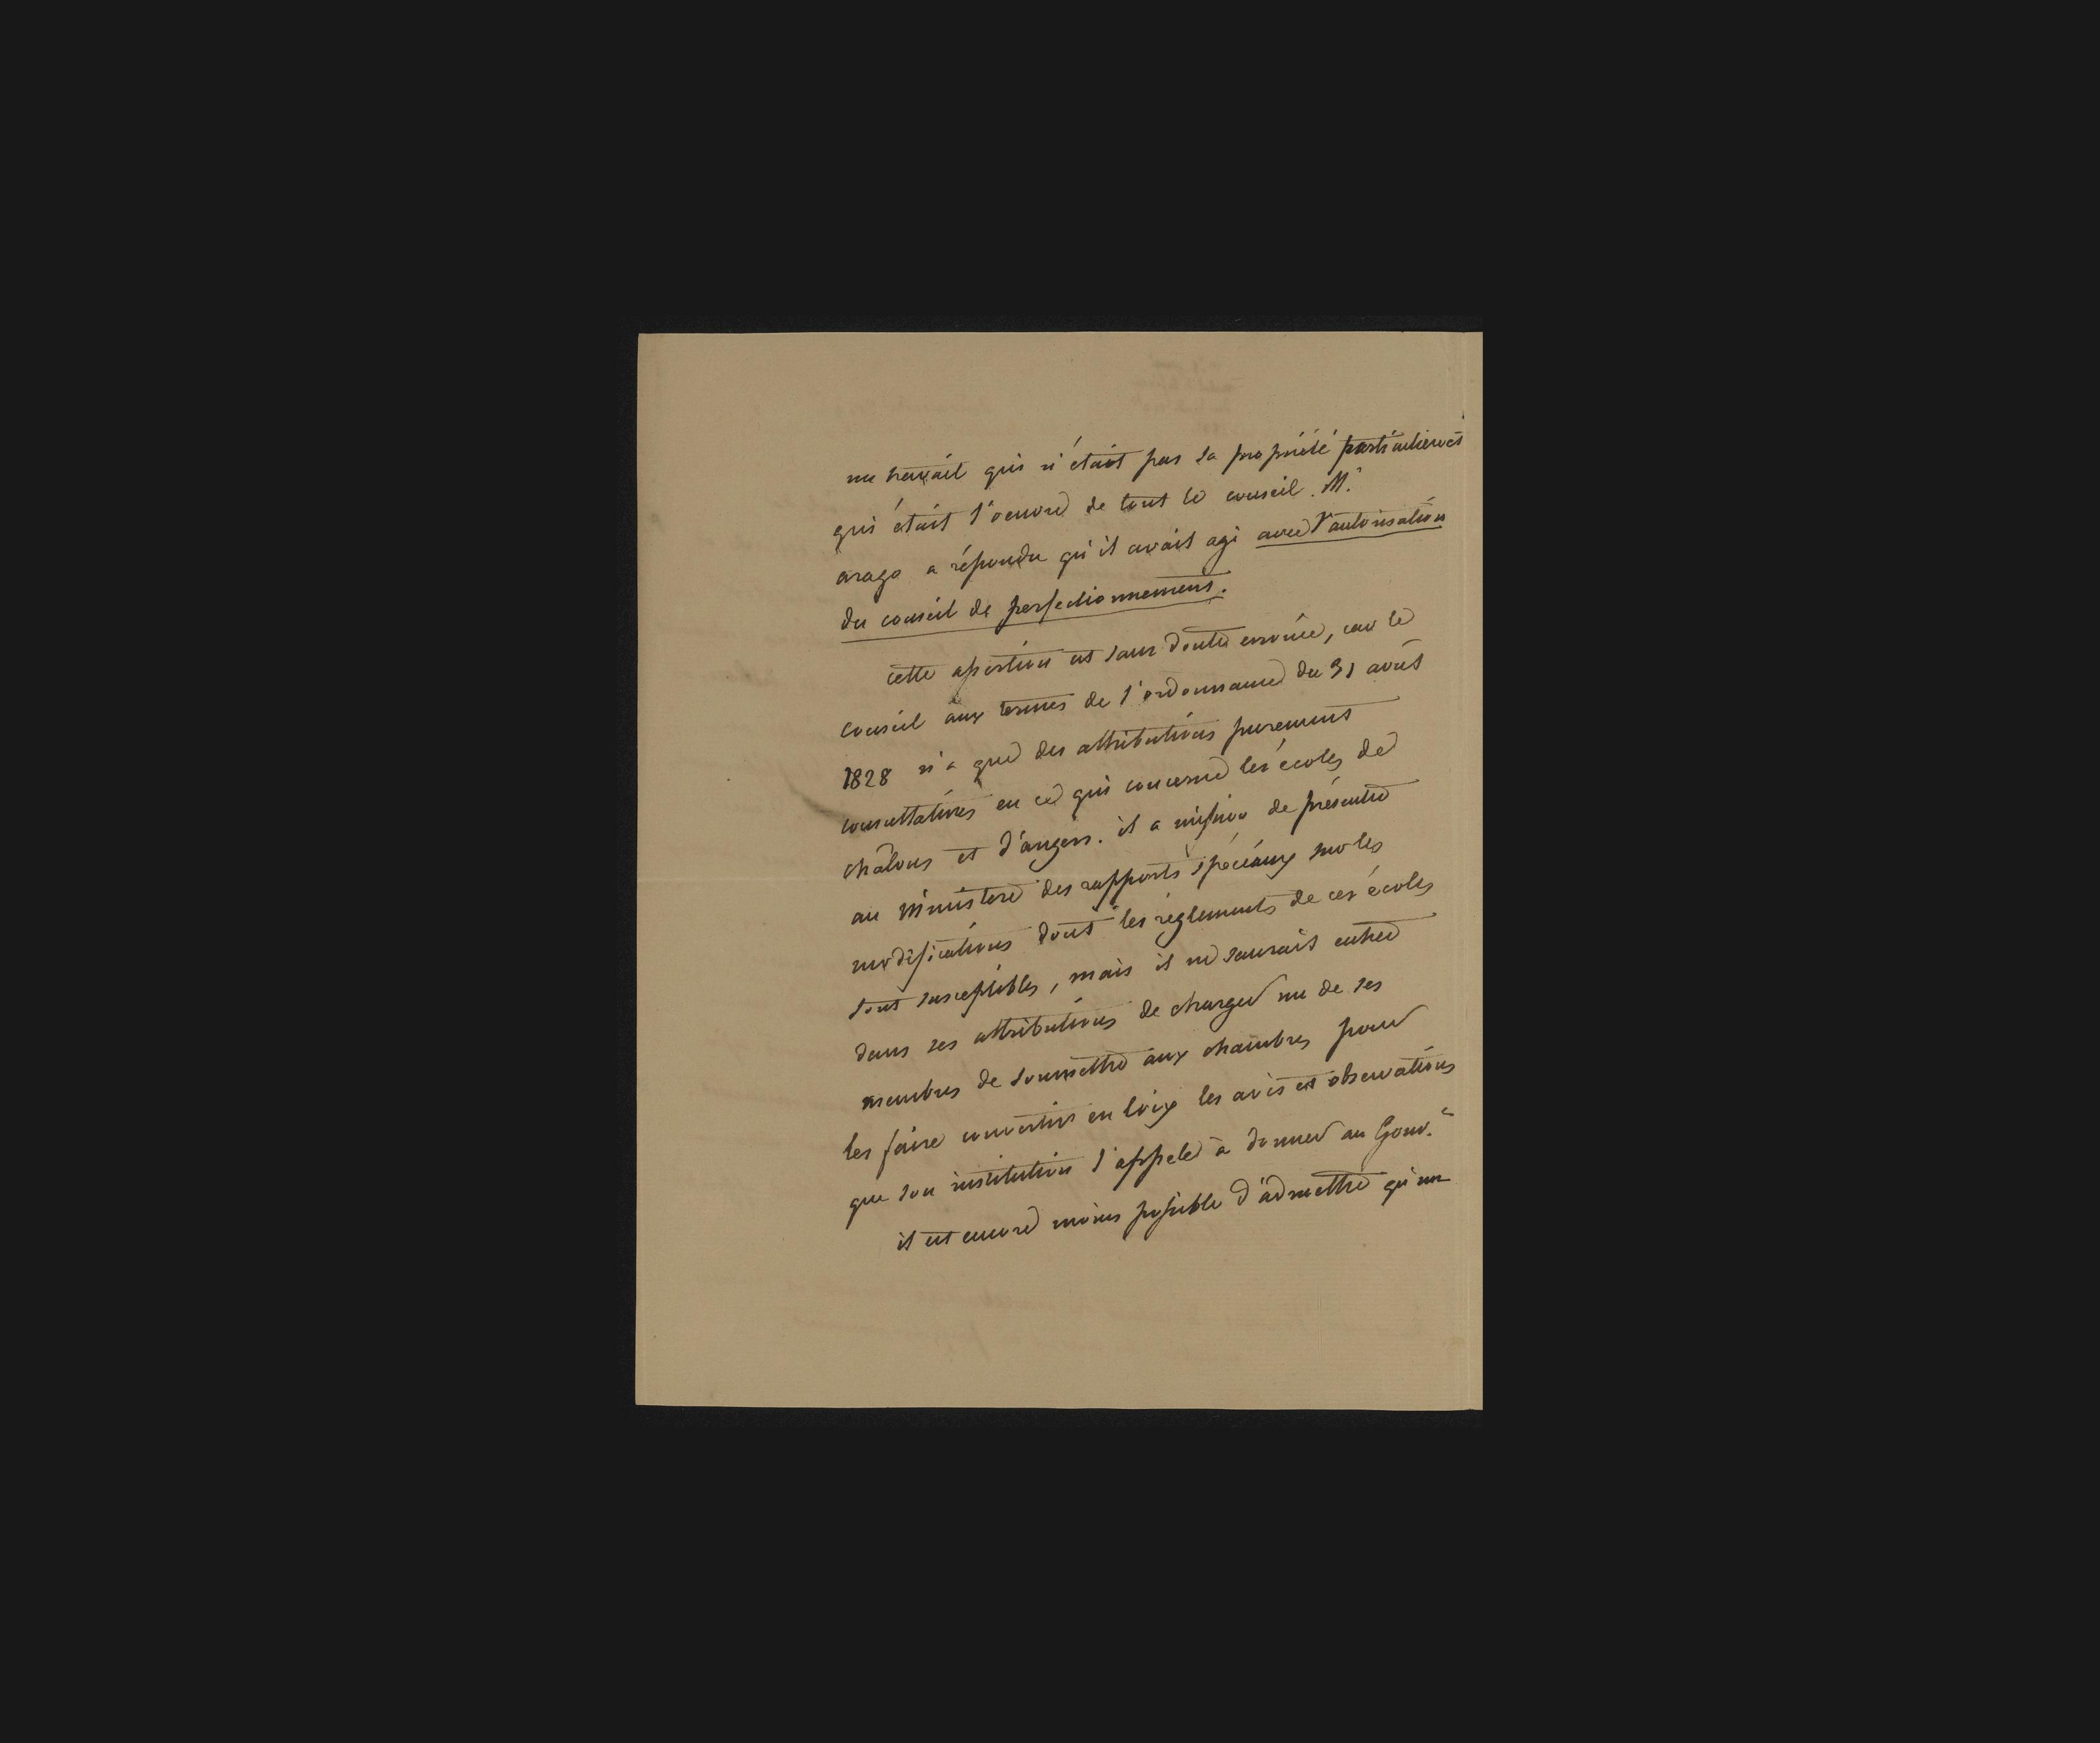 un travail qui n'était pas sa propriété particulière et
qui était l'œuvre de tout le conseil. M.r
arago a répondu qu'il avait agi avec l'autorisation
du conseil de perfectionnement.
cette assertion est sans doute erronée, car le
conseil aux termes de l'ordonnance du 31 août
1828 n'a que des attributions purement
consultatives en ce qui concerne les écoles de
châlons et d'angers. il a mission de présenter
au ministère des rapports spéciaux sur les
modifications dont les règlements de ces écoles
sont susceptibles, mais il ne saurait entrer
dans ses attributions de charger un de ses
membres de soumettre aux chambres pour
les faire convertir en loix les avis et observations
que son institution l'appele à donner au Gouv.t
il est encore moins possible d'admettre qu'un